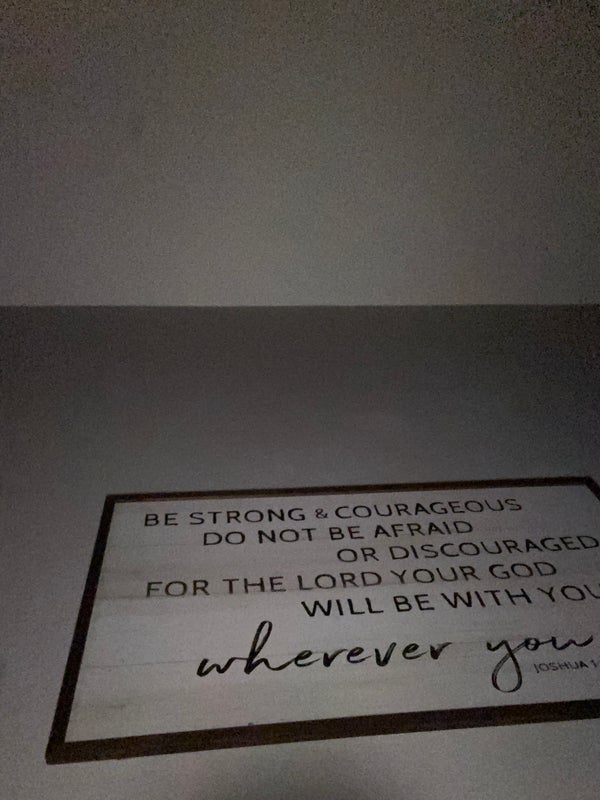 BE STRONG & COURAGEOUS
DO NOT BE AFRAID
OR DISCOURAGED
FOR THE LORD YOUR GOD
WILL BE WITH YOU
wherever you
JOSHUA 1